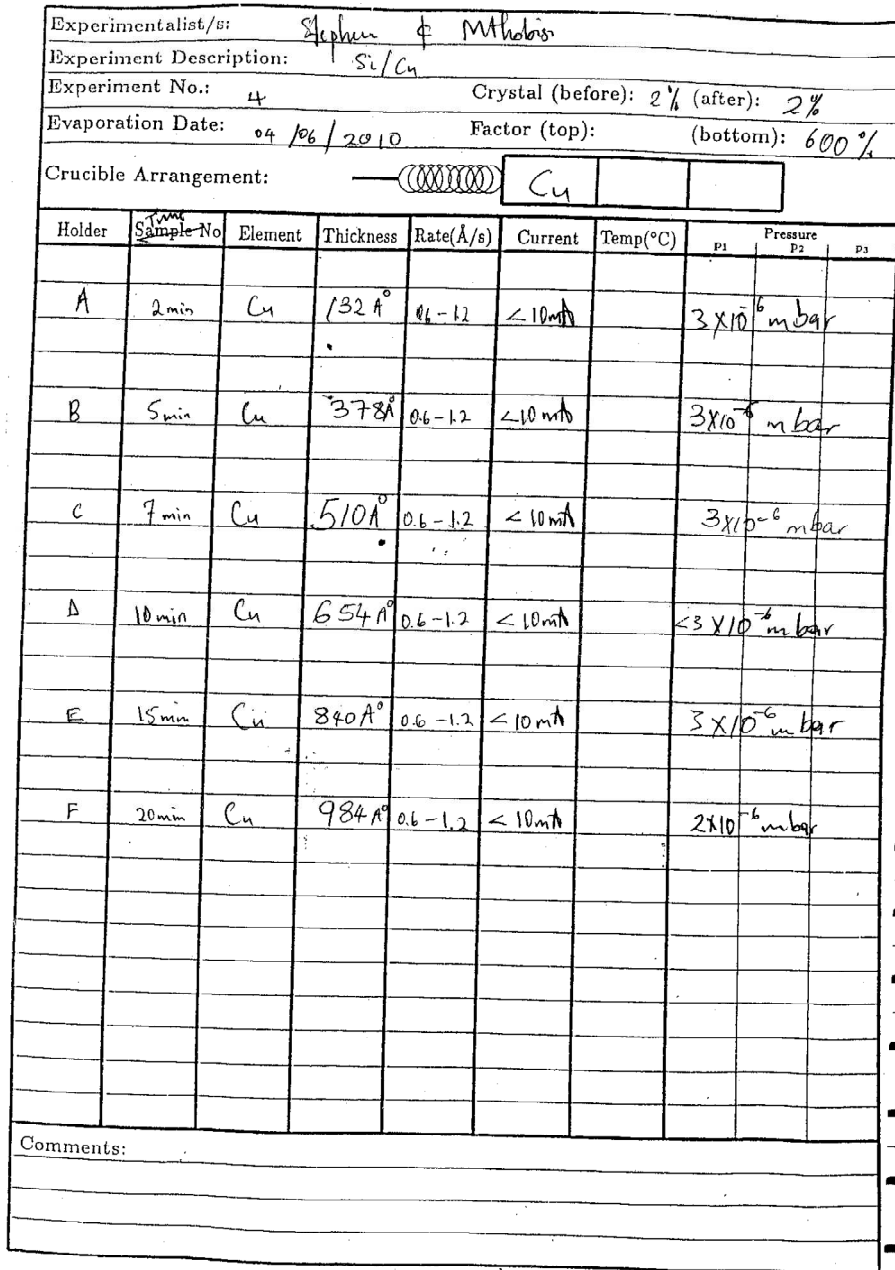 Experimentalist/s: Stephen & Mthobisi
Experiment Description: Si/Cu
Experiment No.: 4 Crystal (before): 2% (after): 2%
Evaporation Date: 04/06/2010 Factor (top): (bottom): 600%
Crucible Arrangement: Cu
Time
Holder Sample No Element Thickness Rate(Å/s) Current Temp(°C) Pressure
P1 P2 P3
A 2 min Cu 132 A° 0.6-1.2 < 10 mA 3 X10^-6 m bar
B 5 min Cu 378A° 0.6-1.2 <10 mA 3X10^-6 m bar
C 7 min Cu 510A° 0.6-1.2 < 10 mA 3X10^-6 mbar
D 10 min Cu 654 A° 0.6-1.2 < 10 mA <3 X10^-6 m bar
E 15 min Cu 840 A° 0.6-1.2 < 10 mA 3 X10^-6 m bar
F 20 min Cu 984 A° 0.6-1.2 < 10 mA 2X10^-6 mbar
Comments: